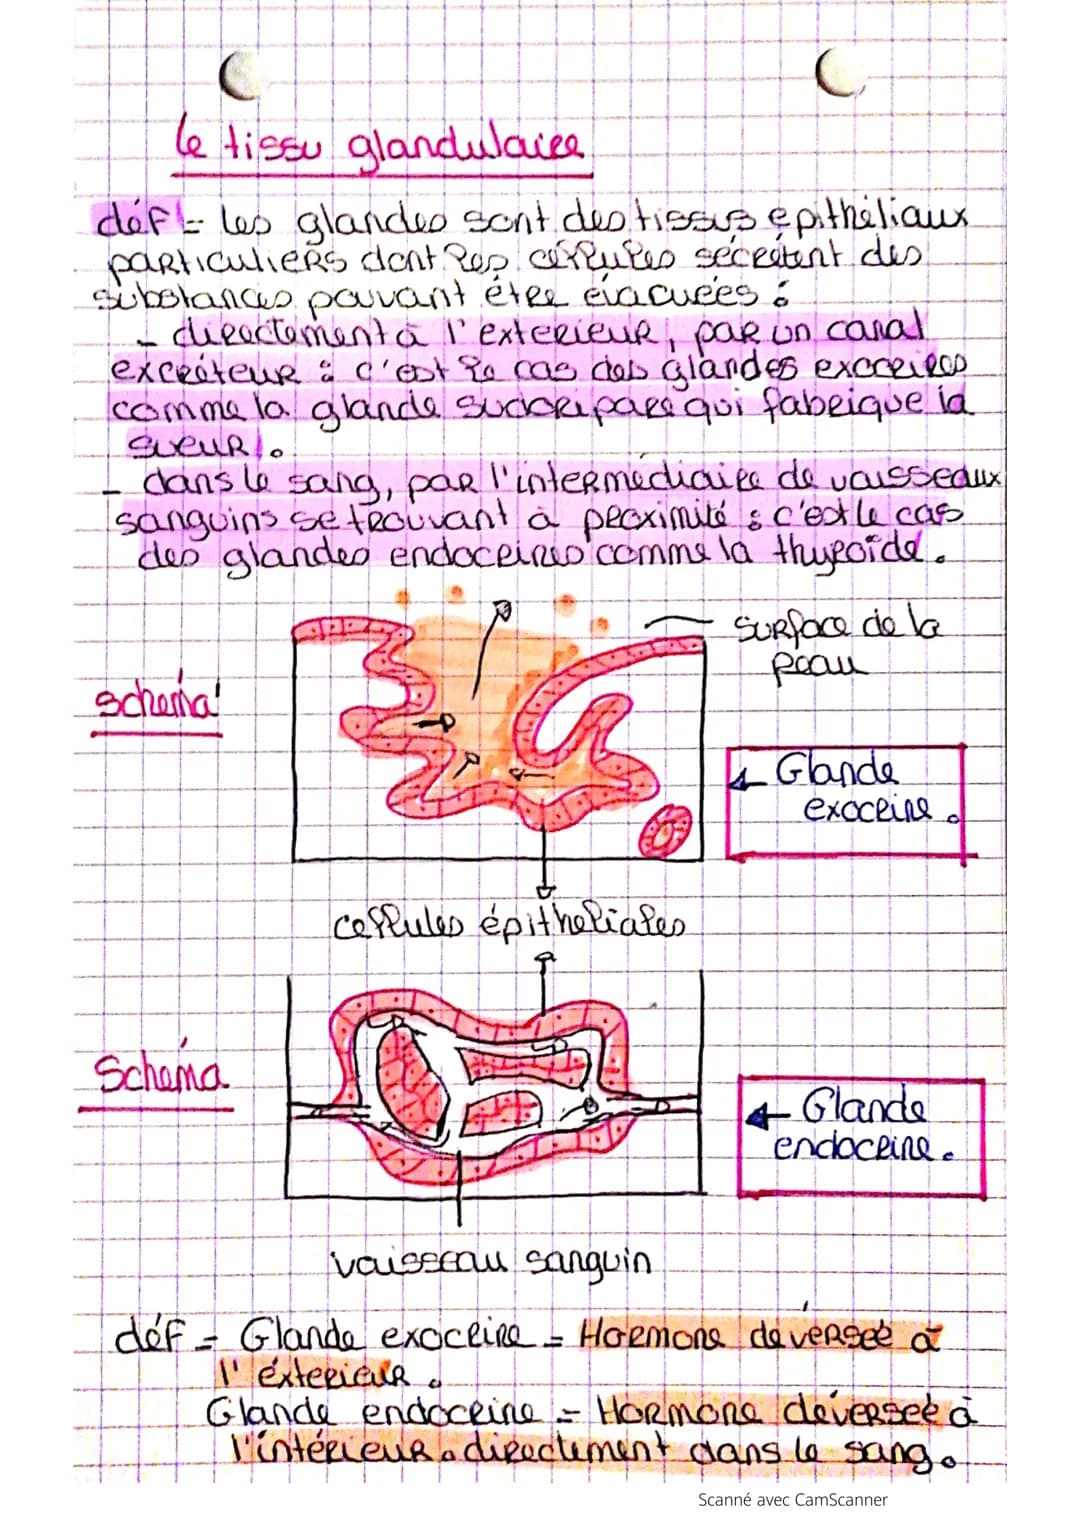 Le tissu glandulaire
déf = les glandes sont des tissus épithéliaux
particuliers dont les cellules sécrètent des
substances pouvant être évacuées :
- directement à l'exterieur, par un canal
excréteur : c'est le cas des glandes exocrines
comme la glande sudoripare qui fabrique la
sueur.
- dans le sang, par l'intermédiaire de vaisseaux
sanguins se trouvant à proximité : c'est le cas
des glandes endocrines comme la thyroïde.
Surface de la
peau
Schéma
Glande
exocrine.
cellules épitheliales
Schéma
Glande
endocrine.
vaisseau sanguin
déf = Glande exocrine = Hormone déverseé à
l'éxterieur.
Glande endocrine = Hormone déverseé à
l'intérieur. directement dans le sang.
Scanné avec CamScanner